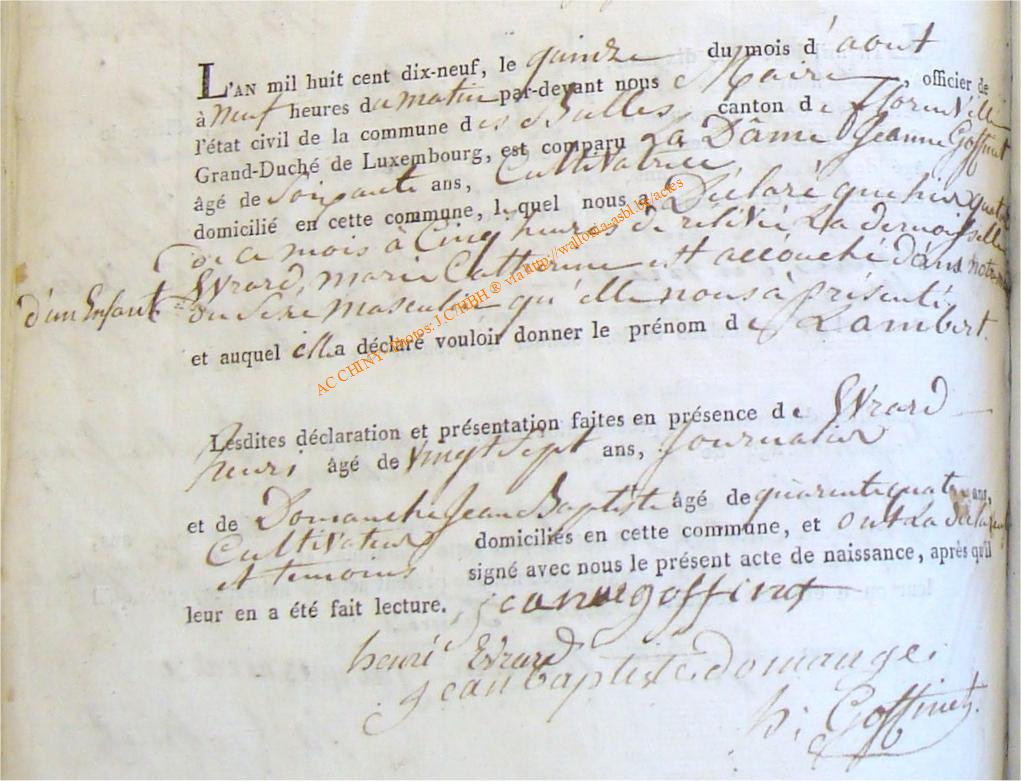 L'AN mil huit cent dix-neuf, le quinze du mois d'aout
à neuf heures du matin par-devant nous Maire, officier de
l'état civil de la commune des Bulles, canton de florenville
Grand-Duché de Luxembourg, est comparu La Dâme Jeanne Goffinet
âgé de Soixante ans, Cultivatrice
domicilié en cette commune, lequel nous a Déclaré que hier quatorze
de ce mois à Cinq heures de relevée La demoiselle
Evrard, marie Catherine est accouché dans notre
d'un Enfant
du Sexe Masculin qu'elle nous à présenté
et auquel elle a déclaré vouloir donner le prénom de Lambert.
Lesdites déclaration et présentation faites en présence de Evrard
henri âgé de vingt Sept ans, Journalier
et de Domanche Jean Baptiste âgé de quarente quatre ans,
Cultivateur domiciliés en cette commune, et ont La déclarante
et temoins signé avec nous le présent acte de naissance, après qu'il
leur en a été fait lecture. jeanne goffinet
henri Evrard
jean baptiste domange.
h: Goffinet.
AC CHINY Photos: J.C/HBH ® via http://wallonia-asbl.be/actes